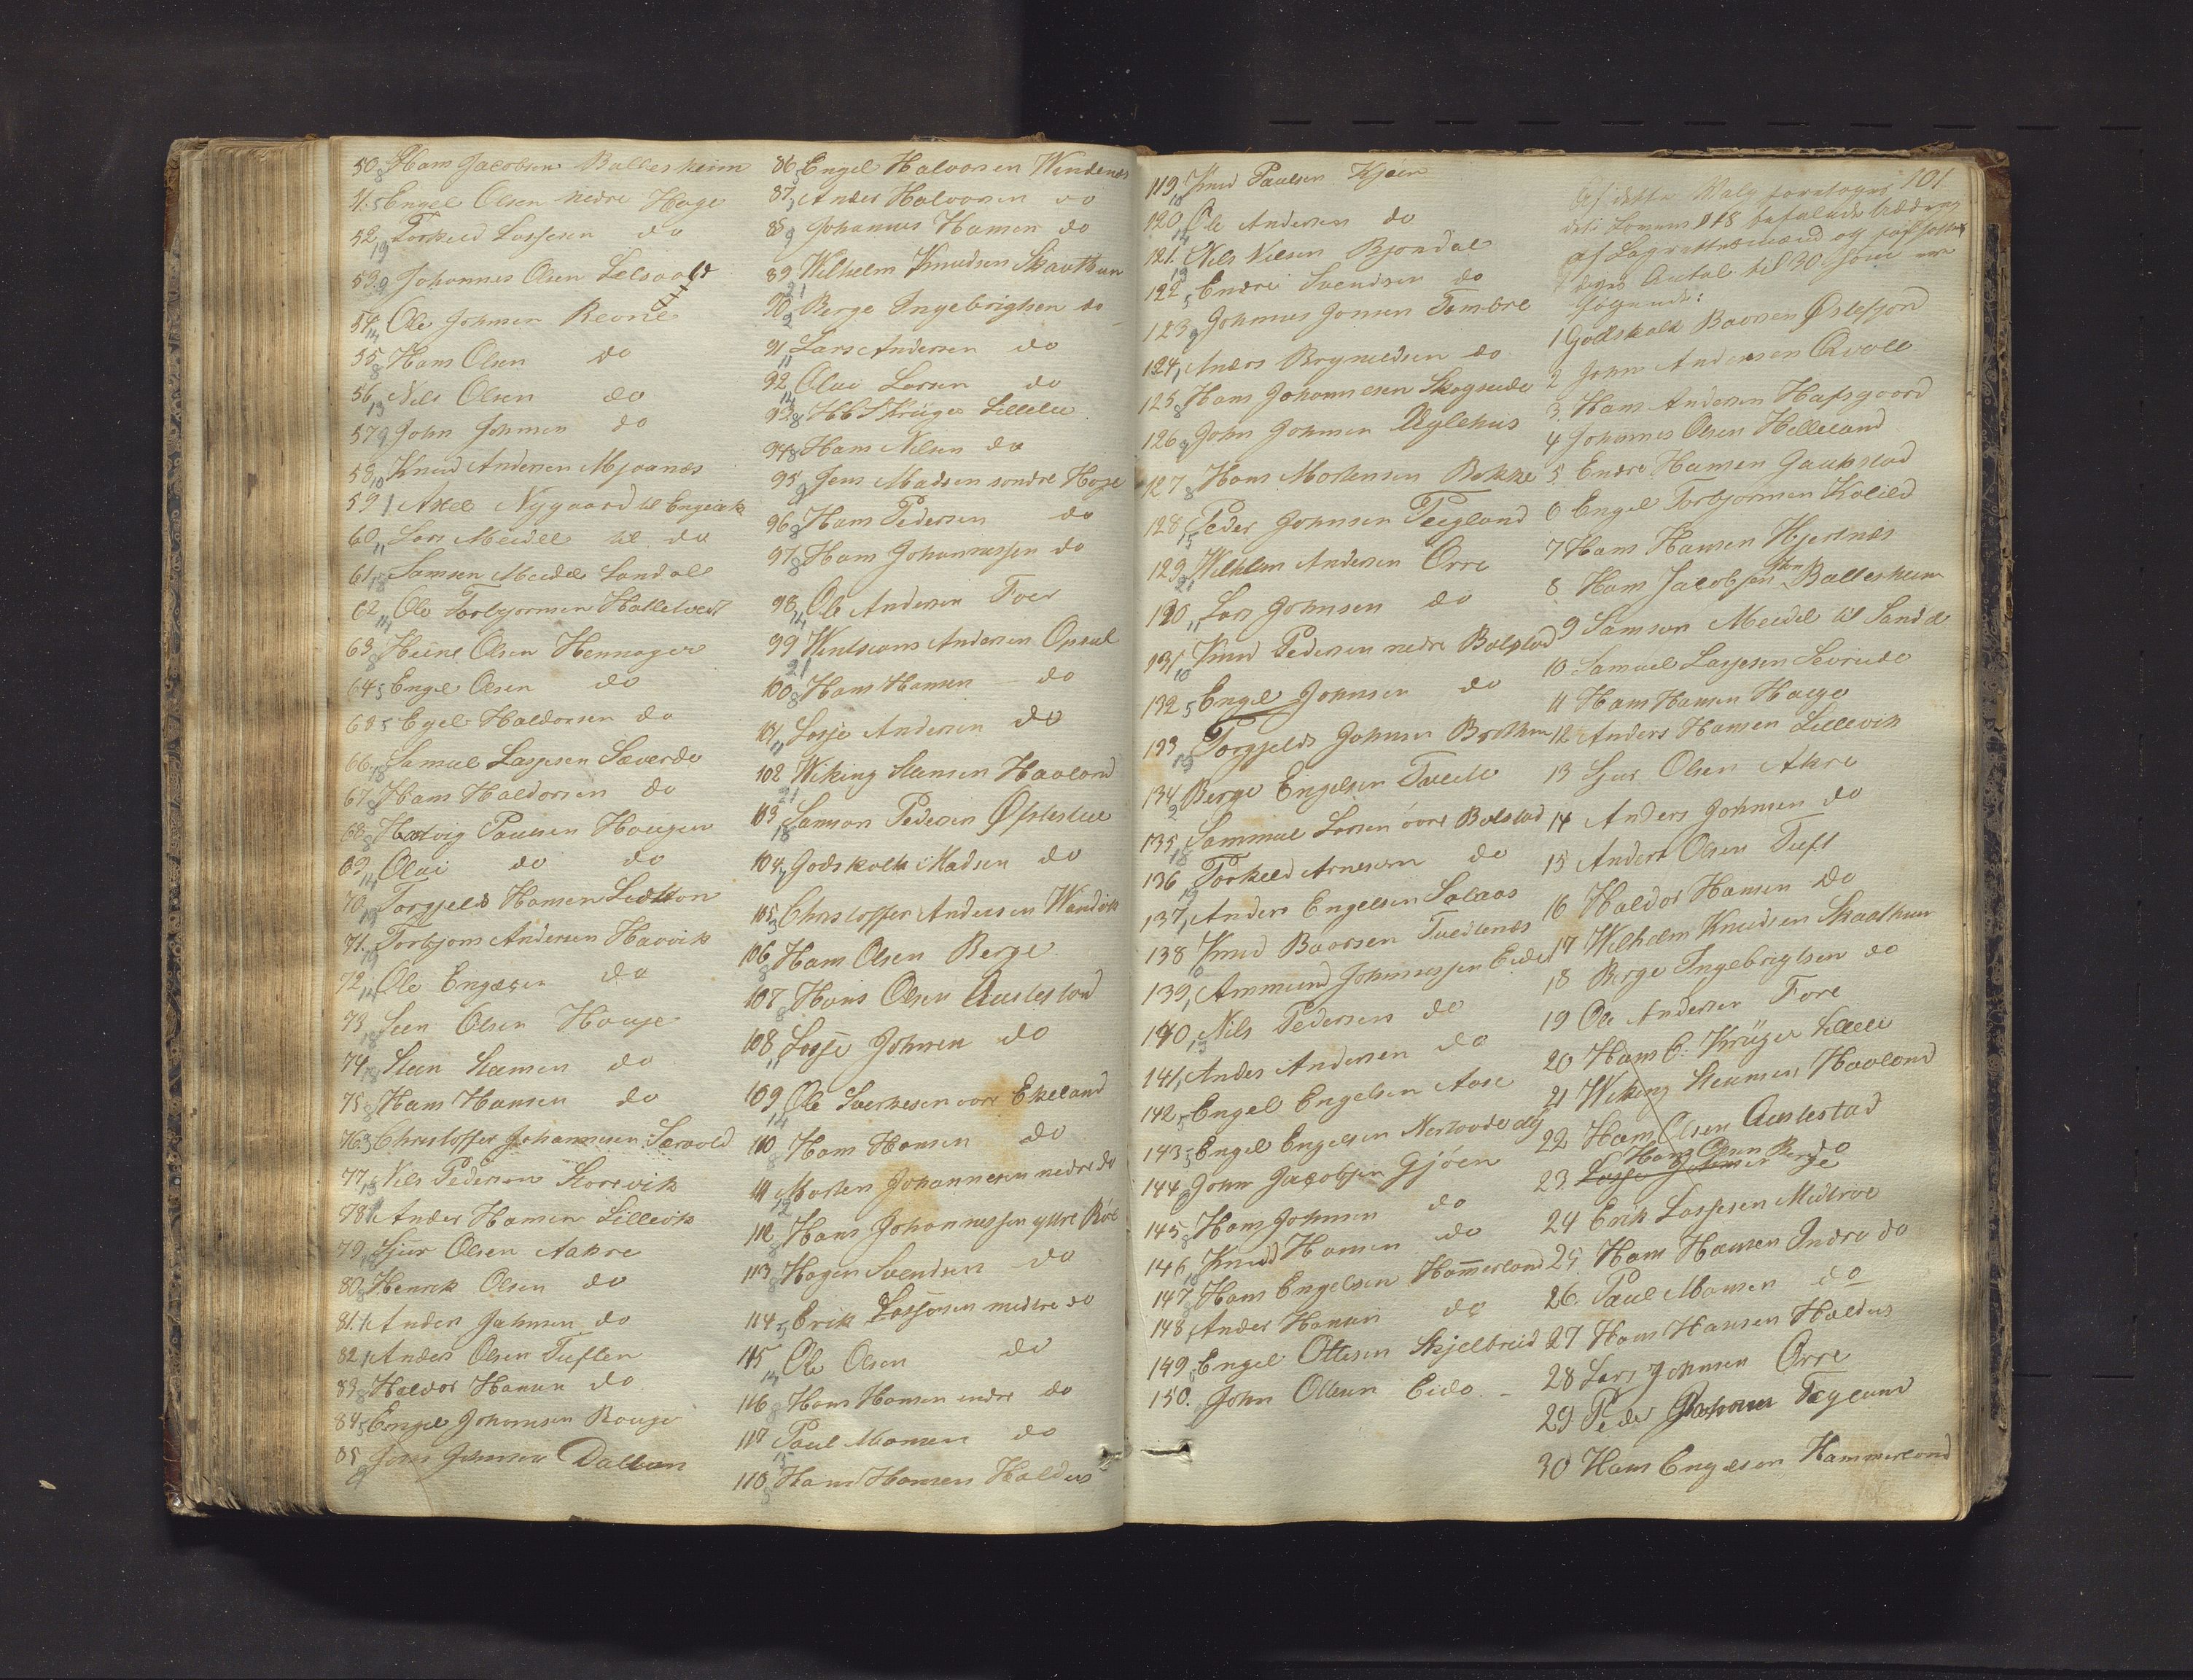 50. Hans Jacobsen Ballesheim
51. Engel Olsen nedre Hage
52. Torkeld Lassesen do
53. Johannes Olsen
54. Ole Johnsen Revne
55. Hans Olsen do
56. Nils Olsen do
57. John Johnsen do
58. Knud Andersen Mjaanæs
59 Axel Nygaard til Engevik
60. Lars Meidell til do
61. Samson Meidell Sandal
62. Ole Torbjørnsen Hallelvedt
63. Heine Olsen Hennager
64. Engel Olsen do
65. Egel Haldorsen do
66. Samuel Lassesen Sæverde
67. Hans Haldorsen do
68. Hartvig Paulsen Haugen
69. Olai do do
70. Torgjelds Hansen
71. Torbjørn Andersen Havvik
72. Ole Engelsen do
73. Steen Olsen Hauge
74. Steen Steensen do
75. Hans Hansen do
76. Christoffer Johannesen Særvold
77. Nils Pederson Storevik
78. Anders Hansen Lillevik
79. Sjur Olsen Aakre
80. Henrik Olsen do
81. Anders Johnsen do
82. Anders Olsen Tuften
83. Haldor Hansen do
84. Engel Johannsen Rouge
85. Jons Johnsen Dallan
86. Engel Halvorsen Wendenæs
87. Anders Halvorsen do
88. Johannes Hansen do
89. Wilhelm Knudsen Skaathun
90. Berge Ingebrigtsen do
91. Lars Andersen do
92. Olai Larsen do
93. Krüger Lillelie
94. Hans Nilsen do
95. Jens Madsen søndre Hage
96. Hans Pedersen do
97. Hans Johannessen do
98. Ole Andersen Foer
99 Andersen Opsal
100. Hans Hansen do
101. Lasse Andersen do
102 Wiking Stensen Havland
103 Samson Pedersen
104. Godskalk Madsen do
105. Christoffer Andersen Wandvik
106. Hans Olsen Berge
107. Hans Olsen Austestad
108. Lasse Johnsen do
109. Ole Sverkesen øvre Ekeland
110 Hans Hansen do
111 Morten Johannesen nedre do
112. Hans Johannessen ytre
113 Hagen Svendsen do
114. Erik Lassesen midtre do
115. Ole Olsen do
116. Hans Hansen indre do
117 Paul Monsen do
118. Hans Hansen Haldus
119. Knud Paulsen Kjøen
120. Ole Andersen do
121. Nils Nilsen Bjøndal
122. Endre Svendsen do
123. Johannes Jonsen Tombre
124. Anders Brynildsen do
125. Hans Johannesen Skogseide
126. John Johnsen Uglehus
127. Hans Mortensen Bokke
128. Peder Johnsen Teigland
129. Wilhelm Andersen Orre
130. Lars Johnsen do
131. Knud Pedersen nedre Bolstad
132. Engel Johnsen do
133. Torgjelds Johnsen
134. Berge Engelsen Tveite
135. Sammul Larsen øvre Bolstad
136 Torkeld Arnesen do
137. Anders Engelsen Salaas
138 Knud Baarsen Tvedtenæs
139. Ammund Johannessen Eide
140. Nils Pedersen do
141. Anders Andersen do
142. Engel Engelsen Aase
143. Engel Engelsen
144. John Jacobsen Gjøen
145. Hans Johnsen do
146. Knud Hansen do
147. Hans Engelsen Hammerland
148. Anders Hansen do
149. Engel Ottesen Skjelbreid
150. John Ottesen Eide
101
Af dette Valg foretoges
af Lagrettesmænd og
deres Antal til 30 som er
følgende:
1 Godtskalk Baarsen
2 John Andersen Qvale
3. Hans Andersen Hafsgaard
4 Johannes Olsen Helleland
5 Endre Hansen Gaukstad
6 Engel Torbjørnsen Koldal
7 Hans Hansen Hjertnæs
8 Hans Jacobsen Ballesheim
9 Samson Meidel til Sandal
10 Samuel Lassesen Sevride
11 Hans Hansen Hauge
12 Anders Hansen Lillevik
13 Sjur Olsen Akre
14 Anders Johnsen do
15 Anders Olsen Tuft
16 Haldor Hansen do
17 Wilhelm Knudsen Skaathun
18 Berge Ingebrigtsen do
19 Ole Andersen Fore
20 Hans C. Krüger Lillelie
21 Wiking Stensen Havland
22 Hans Olsen Austestad
Hans Olsen Berge
23 Lasse Johnsen do
24 Erik Lassesen Midtre
25 Hans Hansen Indre do
26. Paul Monsen do
27 Hans Hansen Haldus
28 Lars Johnsen Orre
29 Peder Johnsen Tegland
30 Hans Engelsen Hammerland